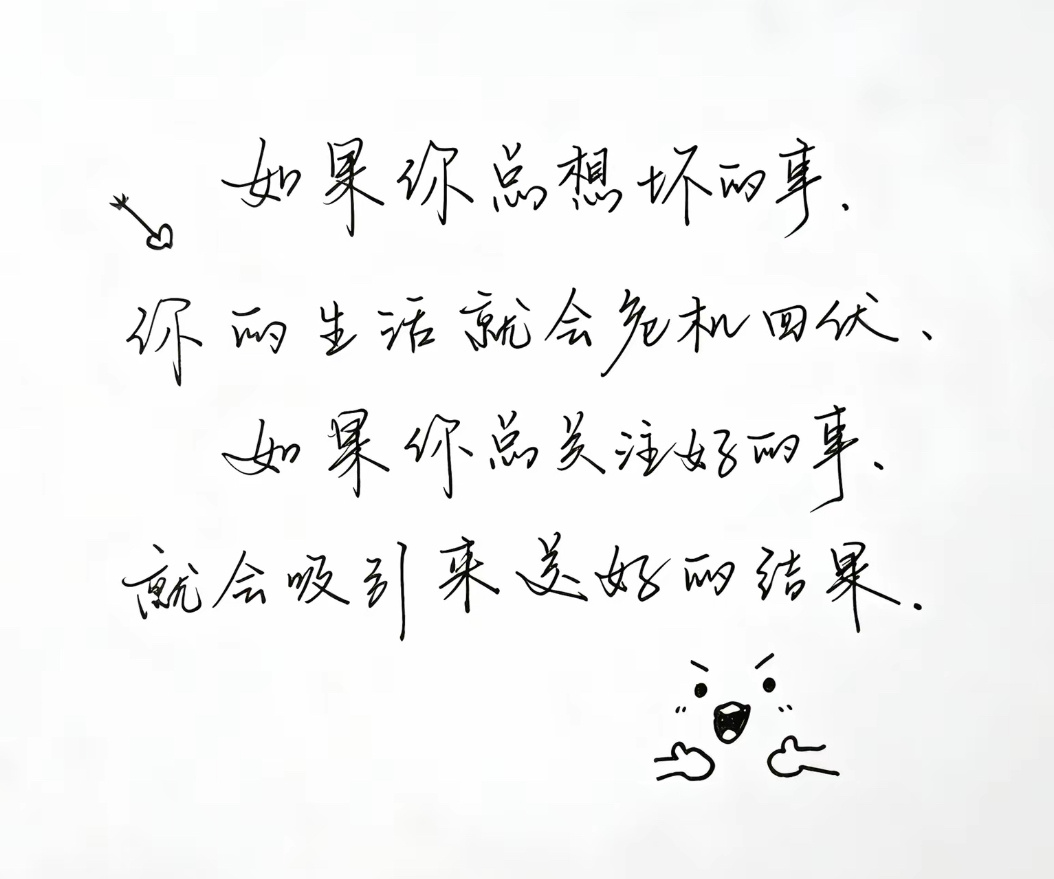 如果你总想坏的事.
你的生活就会危机四伏、
如果你总关注好的事、
就会吸引来美好的结果.